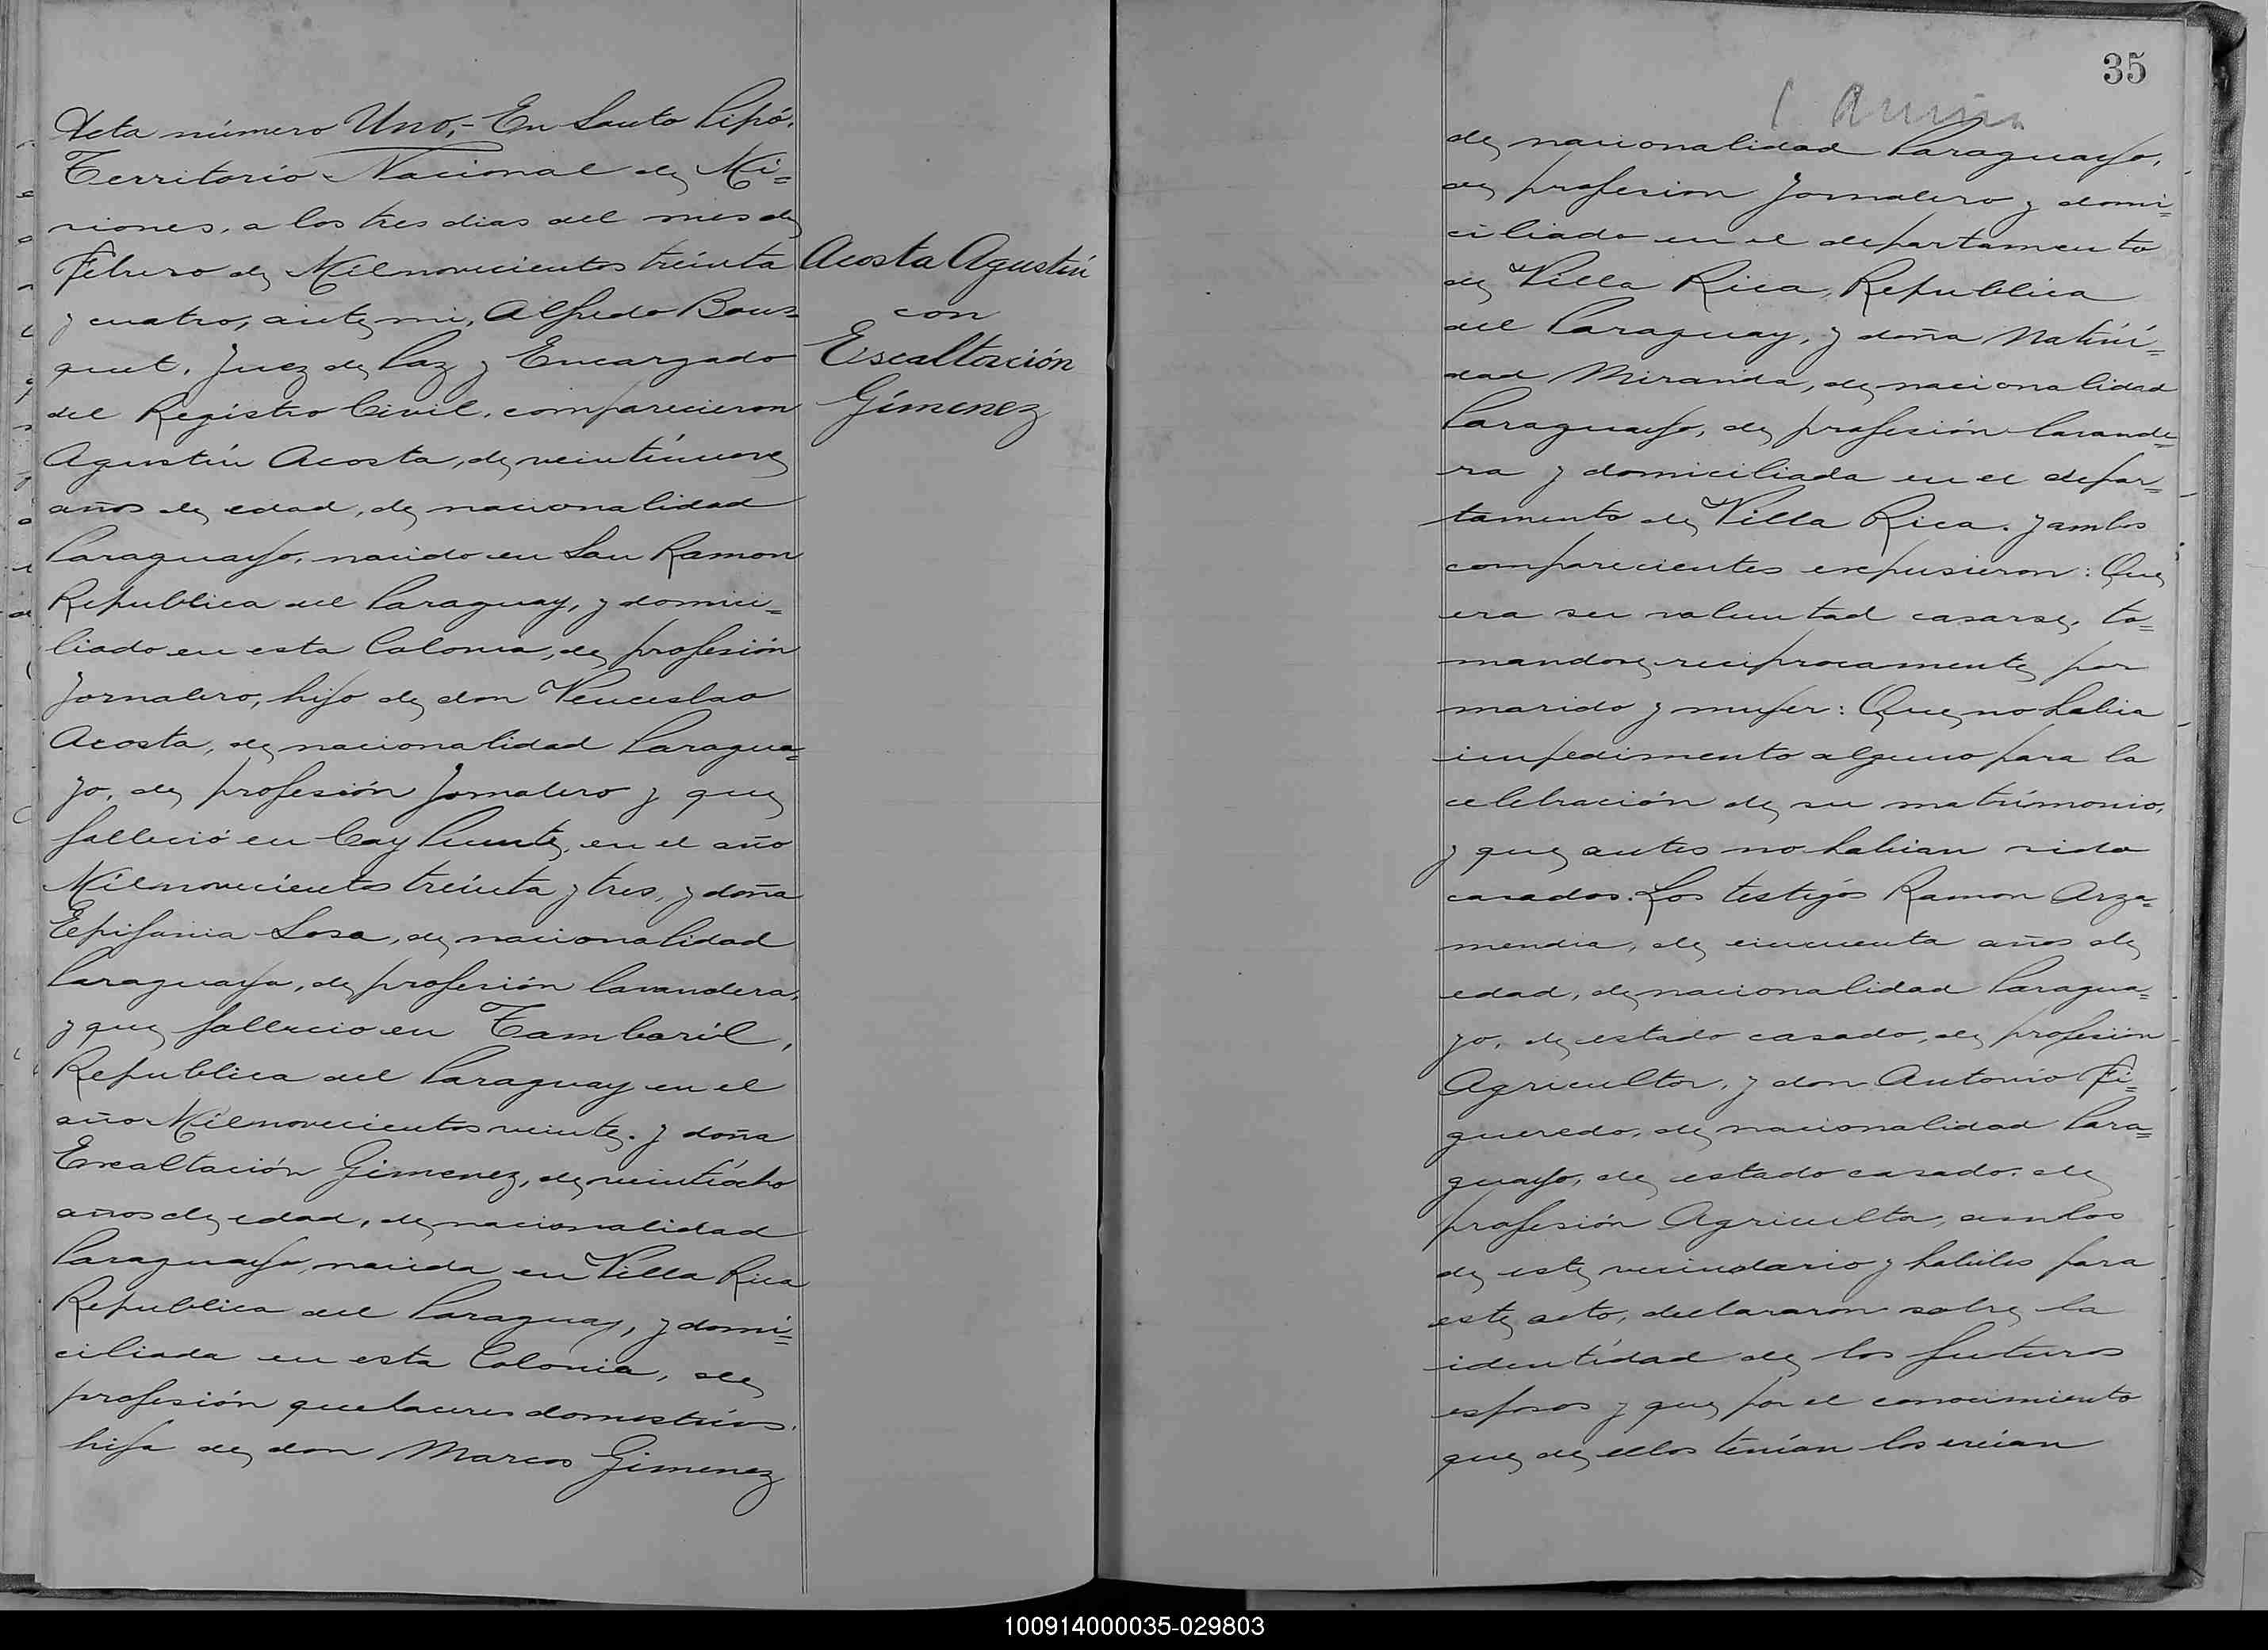 Acta número Uno,- En Santo Pipó.
Territorio Nacional de Mi=
siones, a los tres dias del mes de
Febrero de Milnovecientos treinta
y cuatro, ante mi, Alfredo Bous=
quet, Juez de Paz y Encargado
del Registro Civil, comparecieron
Agustín Acosta, de veintinueve
años de edad, de nacionalidad
Paraguayo, nacido en San Ramon
Republica del Paraguay, y domici=
liado en esta Colonia, de profesión
Jornalero, hijo de don Venceslao
Acosta, de nacionalidad Paragua=
yo, de profesión Jornalero y que
falleció en Cay Puente, en el año
Milnovecientos treinta y tres, y doña
Epifania Sosa, de nacionalidad
Paraguaya, de profesión lavandera,
y que fallecio en Tambaril,
Republica del Paraguay en el
año Milnovecientos veinte. y doña
Exaltación Gimenez, de veintiocho
años de edad, de nacionalidad
Paraguaya, nacida en Villa Rica
Republica del Paraguay, y domi=
ciliada en esta Colonia, de
profesión quehaceres domesticos.
hija de don Marcos Gimenez
Acosta Agustín
con
Escaltación
Gímenez
35
de nacionalidad Paraguayo,
de profesion Jornalero y domi=
ciliado en el departamento
de Villa Rica, Republica
del Paraguay, y doña Nativi=
dad Miranda, de nacionalidad
Paraguaya, de profesión lavande=
ra y domiciliada en el depar=
tamento de Villa Rica. y ambos
comparecientes expusieron: Que
era su voluntad casarse, to=
mandose reciprocamente por
marido y mujer: Que no habia
impedimento alguno para la
celebración de su matrimonio,
y que antes no habian sido
casados. Los testigos Ramon Arza=
mendia, de cincuenta años de
edad, de nacionalidad Paragua=
yo, de estado casado, de profesión
Agricultor, y don Antonio Fi=
gueredo, de nacionalidad Para=
guayo, de estado casado. de
profesión Agriculta, ambos
de este vecindario y habiles para
este acto, declararon sobre la
identidad de los futuros
esposos y que por el conocimiento
que de ellos tenían los creian
100914000035-029803